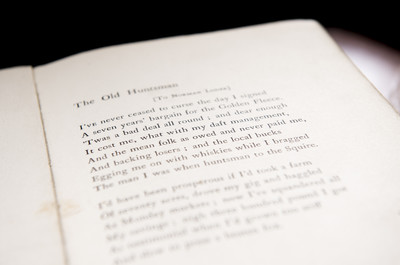 The Old Huntsman
(To Norman Loder)
I've never ceased to curse the day I signed
A seven years' bargain for the Golden Fleece.
'Twas a bad deal all round ; and dear enough
It cost me, what with my daft management,
And the mean folk as owed and never paid me,
And backing losers ; and the local bucks
Egging me on with whiskies while I bragged
The man I was when huntsman to the Squire.
I'd have been prosperous if I'd took a farm
Of seventy acres, drove my gig and haggled
At Monday markets ; now I've squandered all
My savings ; nigh three hundred pound I got